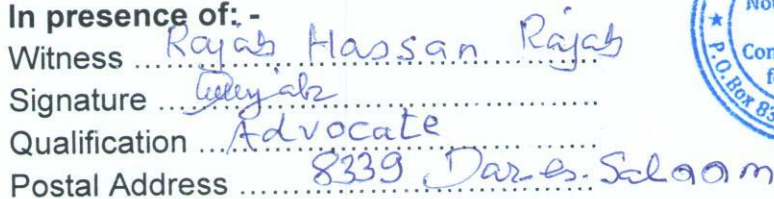 In presence of: -
Witness ... Rajab Hassan Rajab
Signature ...
Qualification ... Advocate
Postal Address ... 8339 Dar-es-Salaam
No
Com
f
P.O. Box 83